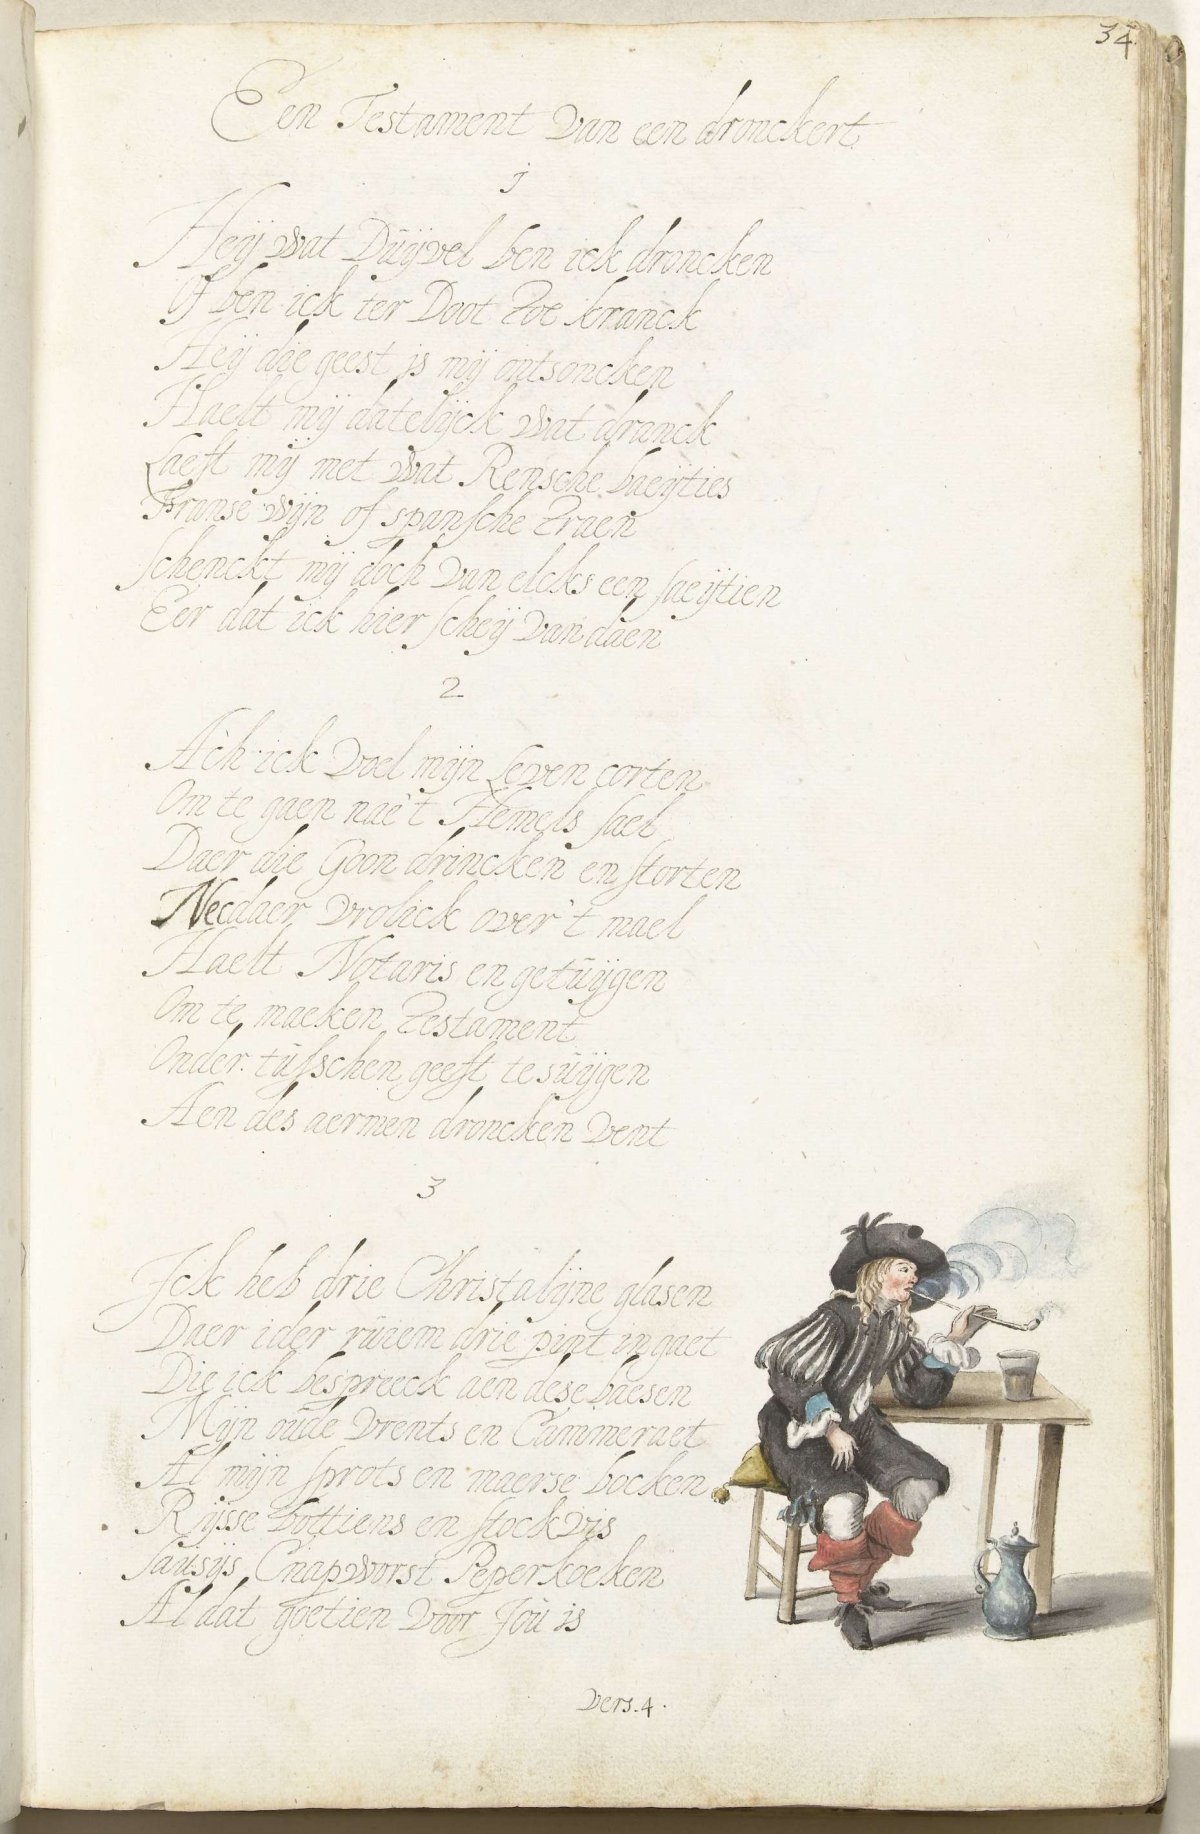 34.
Een Testament Van een dronckert
1
Heij wat Duijvel ben ick droncken
Of ben ick ter Doot Zoe kranck
Heij die geest is mij ontsoncken
Haelt mij datelijck wat dranck
Laeft mij met wat Rensche baeijties
Franse wijn of spansche Zraen
schenckt mij doch van elcks een saeijtien
Eer dat ick hier scheij van daen
2
Ach ick Voel mijn Leven corten
Om te gaen nae't Hemels sael
Daer die Goon drincken en storten
Necdaer Vrolick over't mael
Haelt Notaris en getuijgen
Om te maeken Testament
Onder tusschen geeft te suijgen
Aen des aermen droncken Vent
3
Ick heb drie Christalijne glasen
Daer ider ruiem drie pint in gaet
Die ick bespreeck aen dese baesen
Mijn oude Vrents en Cammeraet
Al mijn sprots en maerse bocken
Rijsse bottiens en stockvis
sausijs Cnapworst Peperkoeken
Al dat goetien Voor Jou is
Vers.4.